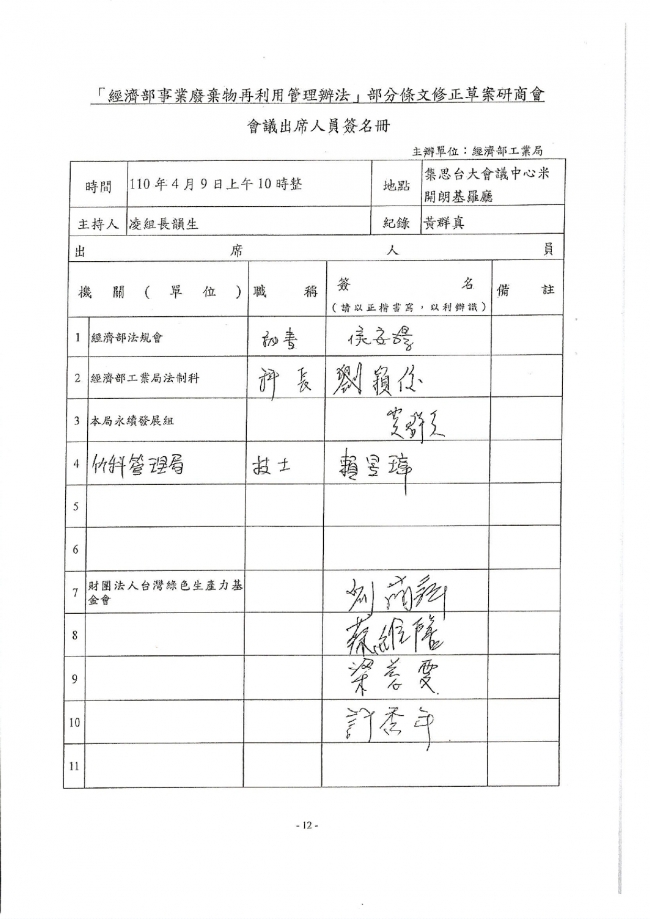 「經濟部事業廢棄物再利用管理辦法」部分條文修正草案研商會
會議出席人員簽名冊
主辦單位：經濟部工業局
時間 110 年 4 月 9 日上午 10 時整 地點 集思台大會議中心米
開朗基羅廳
主持人 凌組長韻生 紀錄 黃群真
出 席 人 員
機 關 ( 單 位 ) 職 稱 簽 名 備 註
(請以正楷書寫，以利辦識)
1 經濟部法規會 秘書
2 經濟部工業局法制科 科長 劉穎
3 本局永續發展組
4 竹科管理局 技士 賴昱璋
5
6
7 財團法人台灣綠色生產力基
金會
8 蔡維
9 梁蓉雯
10 許杏
11
- 12 -